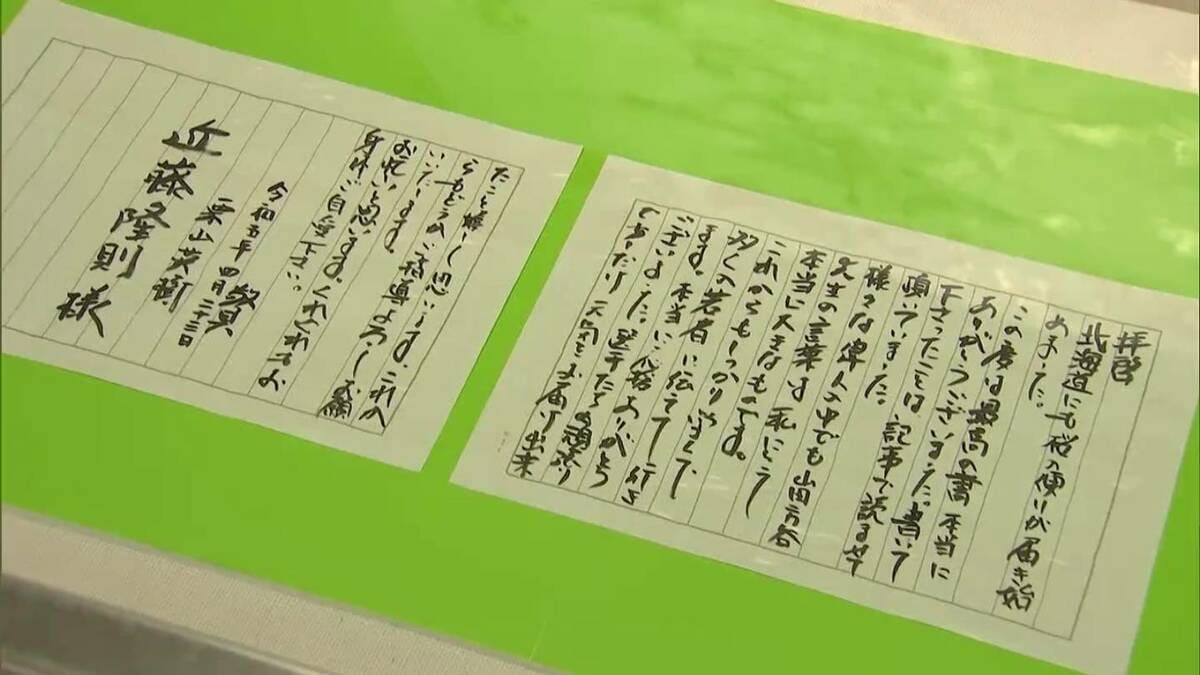 拝啓
北海道にも桜の便りが届き始
めました。
この度は最高の書 本当に
ありがとうございました。書いて
下さったことは、記事で読ませて
頂いていました。
様々な偉人の中でも山田方谷
先生の言葉は私にとって
本当に大きなものです。
これからもしっかり学んで
多くの若者に伝えて行き
ます。本当に心からありがとう
ございました。選手たちの頑張り
で、あたり 天国をお届け出来
たこと嬉しく思います。これか
らもどうかご指導よろしくお願
いいたします。
お忙しいと思います。くれぐれもお
身体ご自愛下さい。
敬具
令和五年四月二十三日
栗山英樹
近藤隆則 様